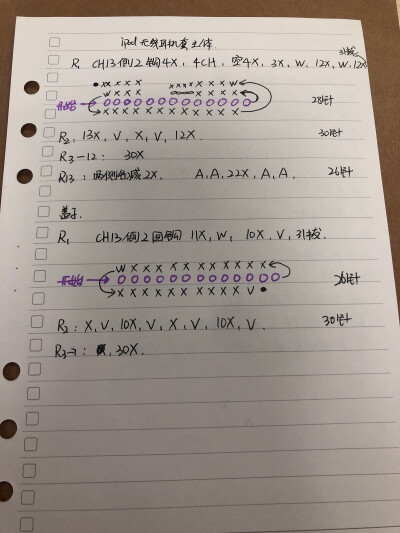 ipod 无线耳机套主体
引拔
R, CH13 倒2钩4X, 4CH, 空4X, 3X, W, 12X, W, 12X
• X X X X X X X X X X W
W X X X X X X X
开始 O O O O O O O O O O O O O 28针
X X X X X X X X X X X X
R2, 13X, V, X, V, 12X 30针
R3-12: 30X
R13: 两侧各减2X. A, A, 22X, A, A. 26针
盖子.
R, CH13 倒2回钩 11X, W, 10X, V, 引拔
W X X X X X X X X X X X
开始 O O O O O O O O O O O O O 26针
X X X X X X X X X X V •
R2: X, V, 10X, V, X, V, 10X, V. 30针
R3-7: 30X.